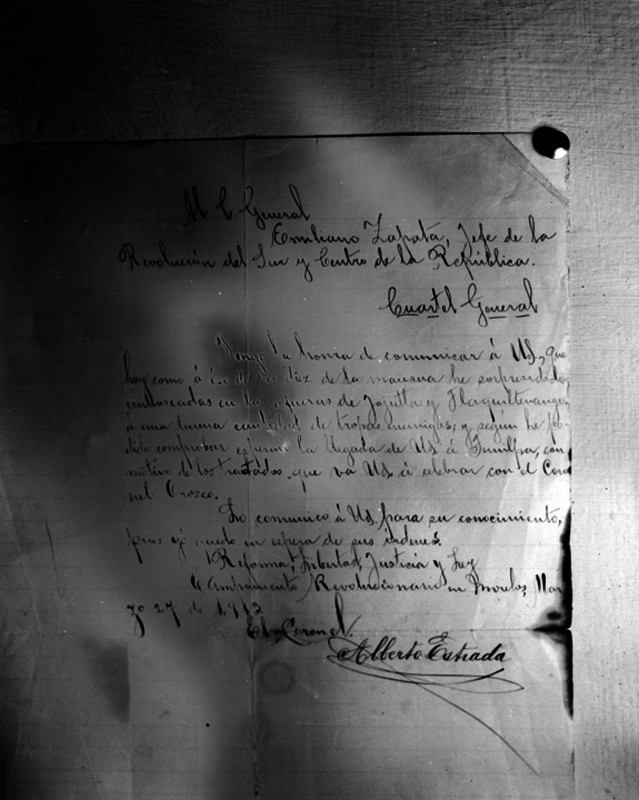 Al C. General
Emiliano Zapata, Jefe de la
Revolución del Sur y Centro de la República.
Cuartel General
Tengo la honra de comunicar á Ud., que
hoy como á las diez de la mañana he sorprendido,
emboscadas en las afueras de Jojutla y Tlaquiltenango,
á una buena cantidad de tropas enemigas; y según he po-
dido comprobar esperan la llegada de Ud. á                 con
motivo de los tratados que va Ud. á celebrar con el Coro
nel Orozco.
Lo comunico á Ud. para su conocimiento,
pues yó quedo en espera de sus órdenes.
Reforma, Libertad, Justicia y Ley
Campamento Revolucionario en Morelos, Mar
zo 27 de 1912
El Coronel.
Alberto Estrada